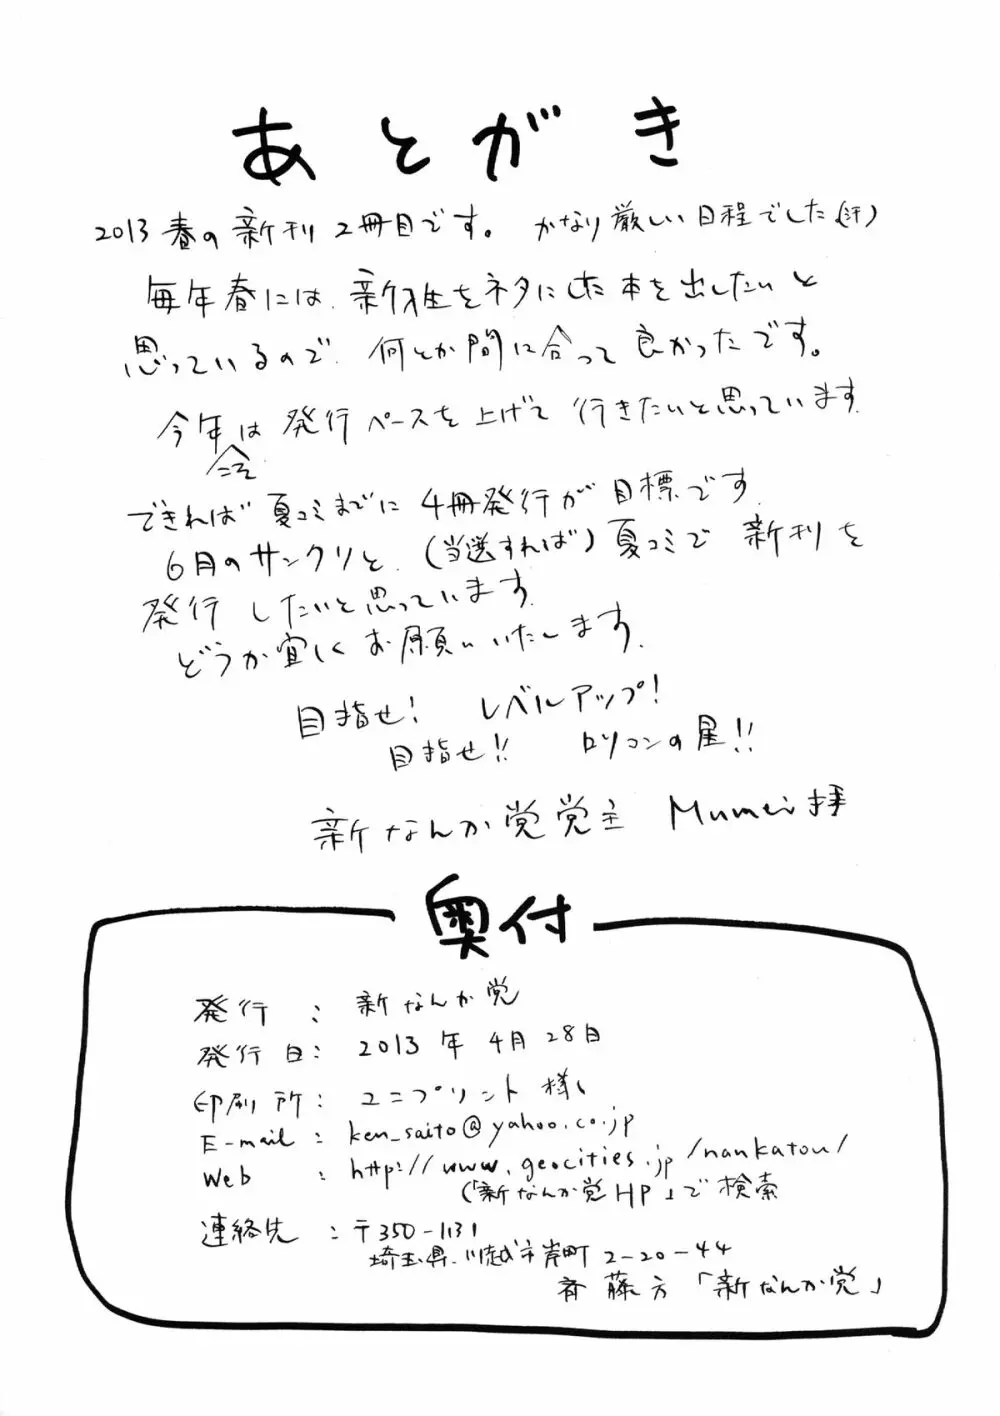 あとがき
2013春の新刊2冊目です。かなり厳しい日程でした(汗)
毎年春には、新入生をネタにした本を出したいと
思っているので、何とか間に合って良かったです。
今年は発行ペースを上げて行きたいと思っています。
こそ
できれば夏コミまでに4冊発行が目標です。
6月のサンクリと、(当選すれば)夏コミで新刊を
発行したいと思っています。
どうか宜しくお願いいたします。
目指せ! レベルアップ!
目指せ!! ロリコンの星!!
新なんか党党主 Mumei拝
奥付
発行 : 新なんか党
発行日: 2013年4月28日
印刷所: ユニプリント様
E-mail : ken_saito@yahoo.co.jp
Web : http://www.geocities.jp/nankatou/
(「新なんか党HP」で検索
連絡先 : 〒350-1131
埼玉県川越市岸町2-20-44
斉藤方「新なんか党」